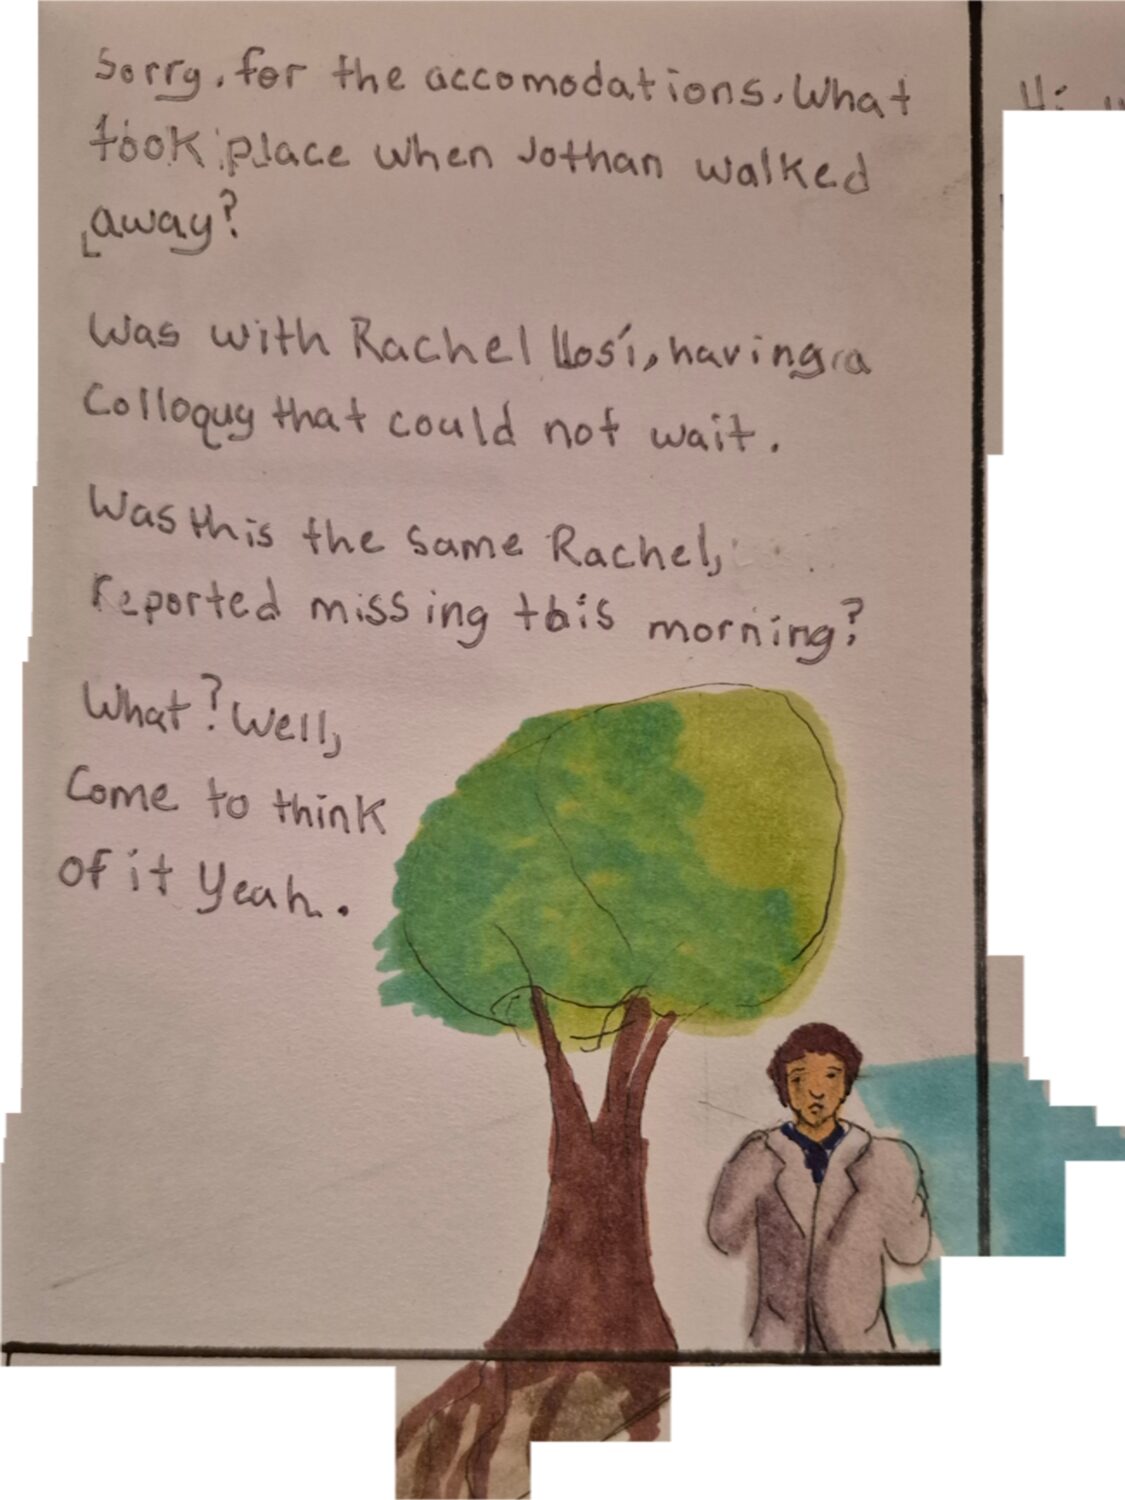 Sorry, for the accomodations. What
took place when Jothan walked
away?
Was with Rachel Llosí, having a
Colloquy that could not wait.
Was this the same Rachel,
reported missing this morning?
What? Well,
Come to think
of it Yeah.
Hi